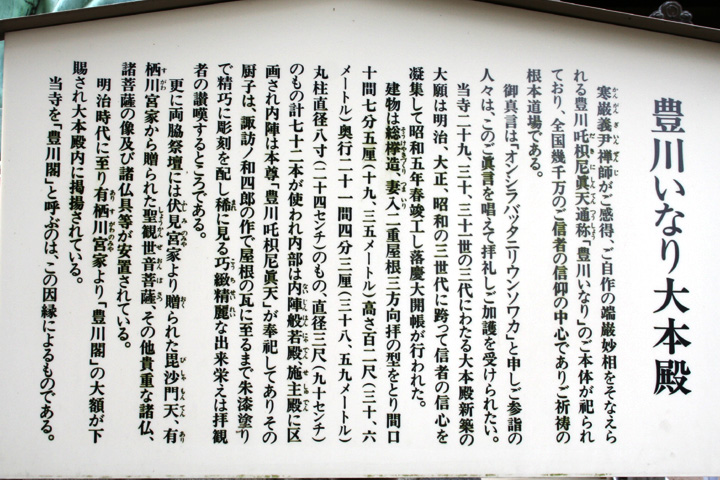 豊川いなり大本殿
寒巌義尹禅師がご感得、ご自作の端厳妙相をそなえら
れる豊川吒枳尼眞天通称「豊川いなり」のご本体が祀られ
ており、全国幾千万のご信者の信仰の中心でありご祈祷の
根本道場である。
御真言は「オンシラバッタニリウンソワカ」と申しご参詣の
人々は、このご眞言を唱えて拝礼しご加護を受けられたい。
当寺二十九、三十、三十一世の三代にわたる大本殿新築の
大願は明治、大正、昭和の三世代に跨って信者の信心を
凝集して昭和五年春竣工し落慶大開帳が行われた。
建物は総欅造、妻入二重屋根三方向拝の型をとり間口
十間七分五厘(十九、三五メートル)高さ百二尺(三十、六
メートル)奥行二十一間四分三厘(三十八、五九メートル)
丸柱直径八寸(二十四センチ)のもの、直径三尺(九十センチ)
のもの計七十二本が使われ内部は内陣般若殿施主殿に区
画され内陣は本尊「豊川吒枳尼眞天」が奉祀してありその
厨子は、諏訪ノ和四郎の作で屋根の瓦に至るまで朱漆塗り
で精巧に彫刻を配し稀に見る巧緻精麗な出来栄えは拝観
者の讃嘆するところである。
更に両脇祭壇には伏見宮家より贈られた毘沙門天、有
栖川宮家から贈られた聖観世音菩薩、その他貴重な諸仏、
諸菩薩の像及び諸仏具等が安置されている。
明治時代に至り有栖川宮家より「豊川閣」の大額が下
賜され大本殿内に掲揚されている。
当寺を「豊川閣」と呼ぶのは、この因縁によるものである。